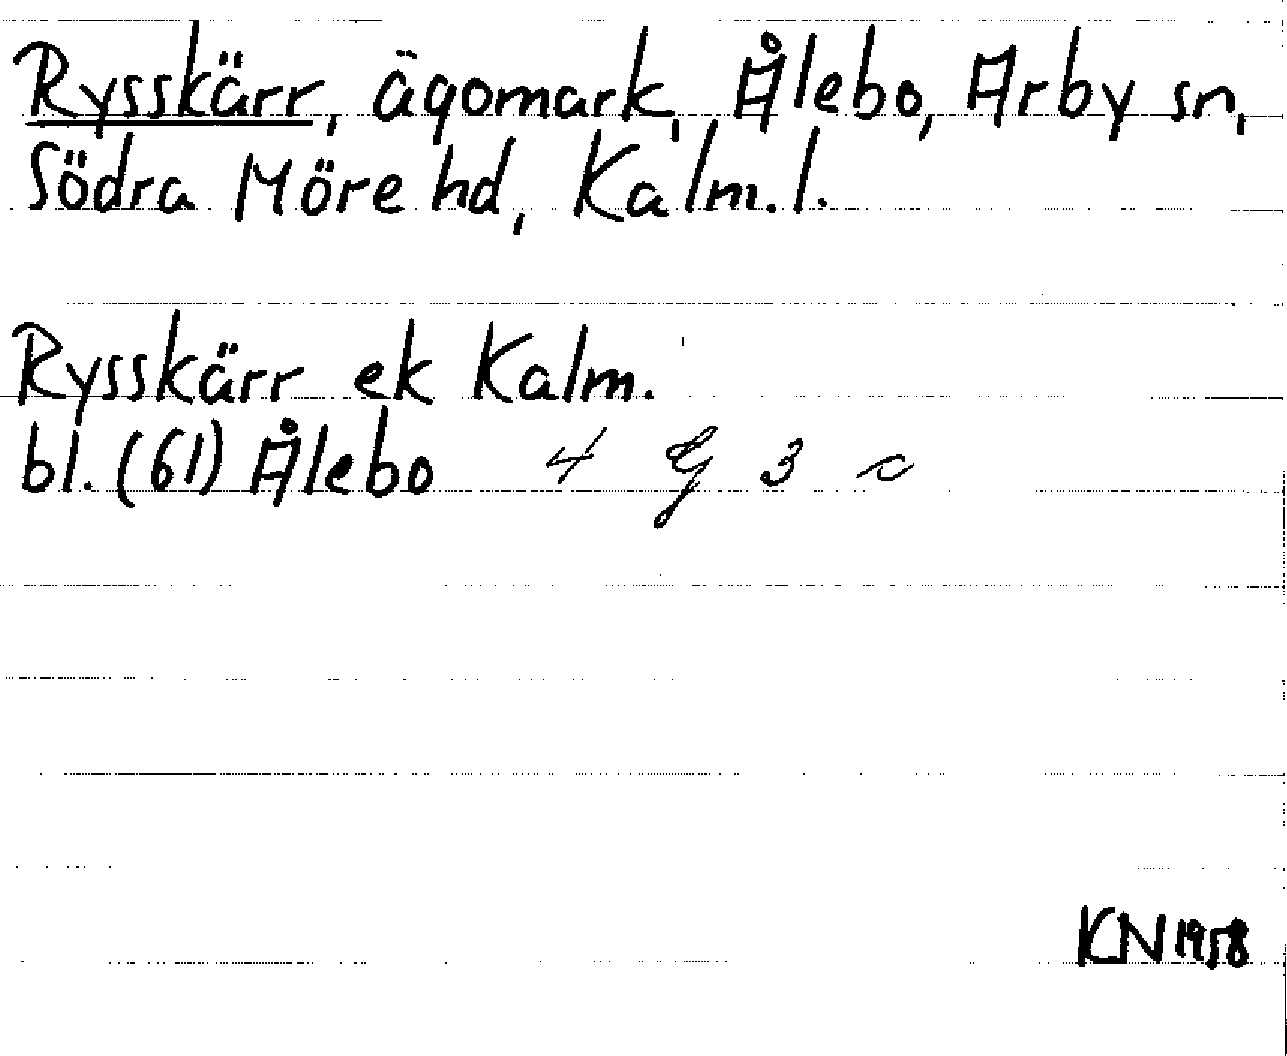 Rysskärr, ägomark, Ålebo, Arby sn,
Södra Möre hd, Kalm. l.
Rysskärr ek Kalm.
bl. (61) Ålebo 4 G 3 c
KN 1958